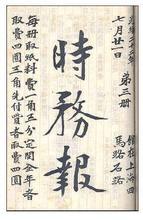 七月廿一日
第三冊
館在上海四
馬路石路
時務報
每冊取紙料費一角五分定閱全年者
取費四圓三角先付資者取費四圓